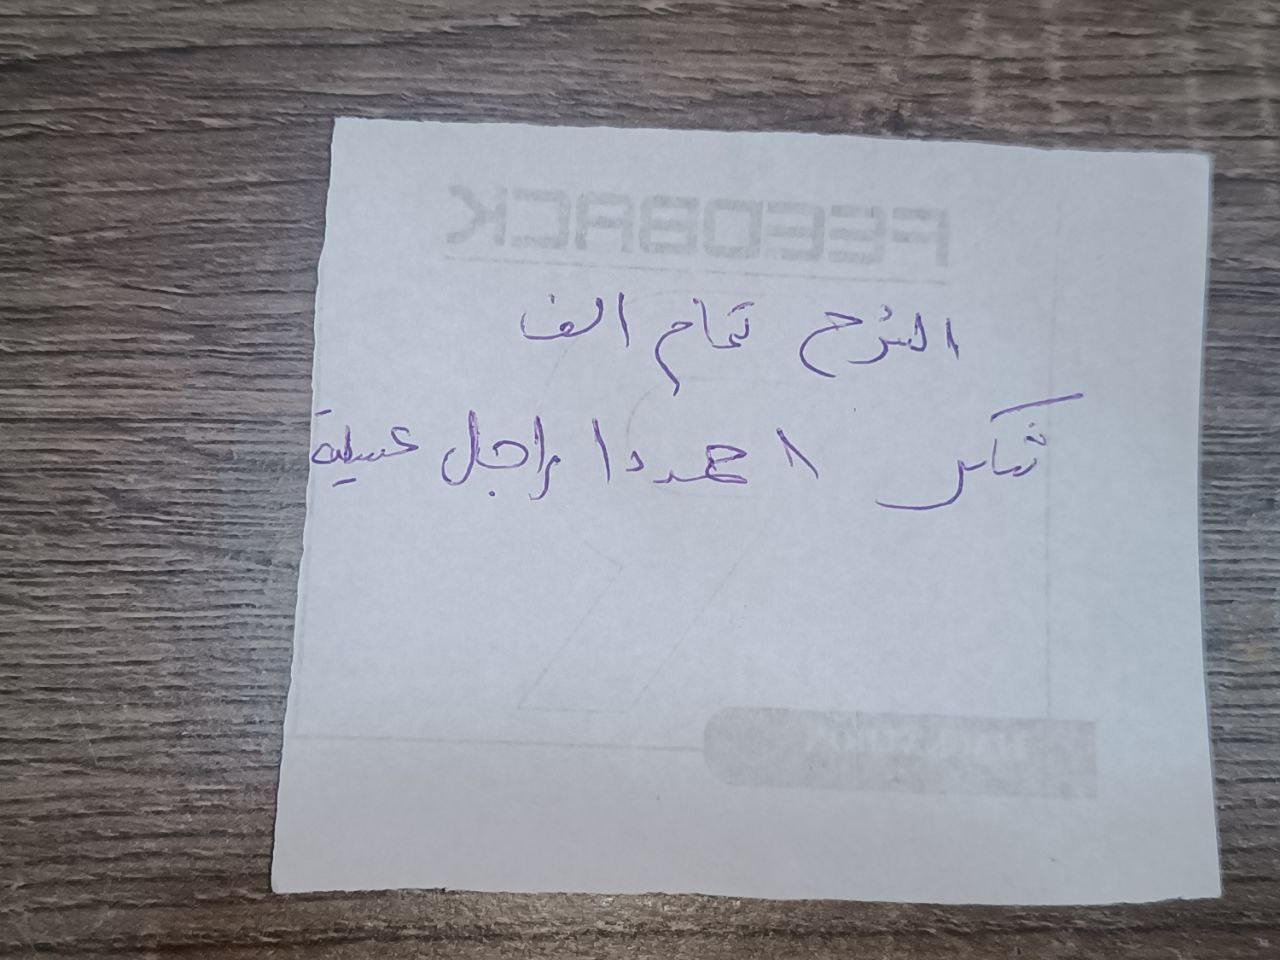 FEEDBACK
الشرح تمام الف
شكر احمد دا راجل عسلية